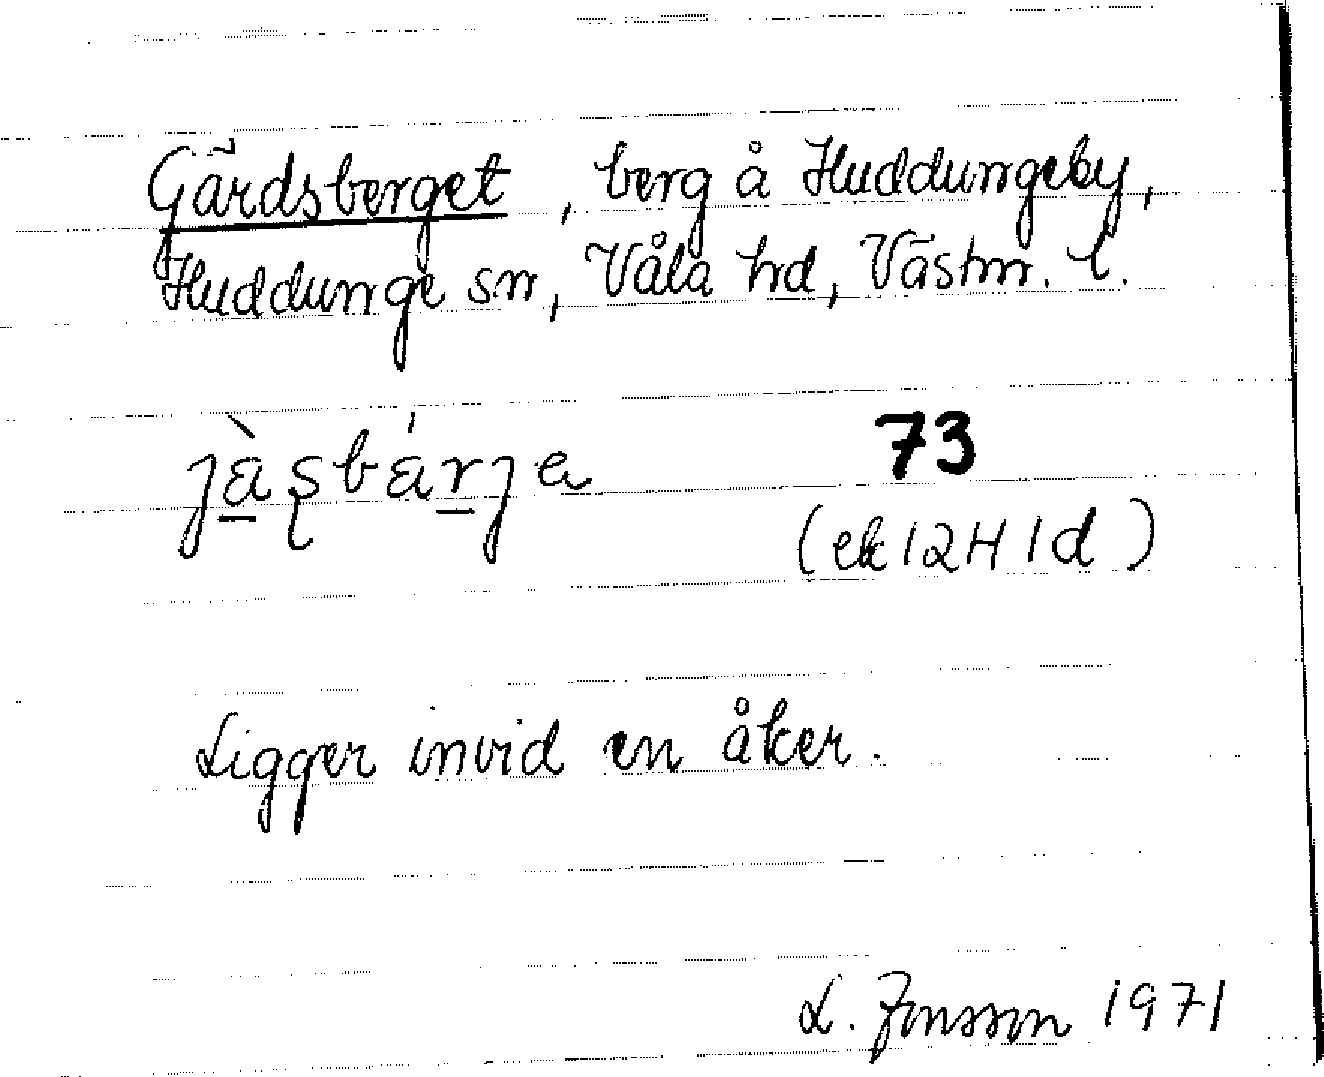 Gärdsberget, berg å Huddungeby,
Huddunge sn, Våla hd, Västm. l.
jàṣbárjɐ 73
(ek 12H 1d)
Ligger invid en åker.
L. Jonsson 1971